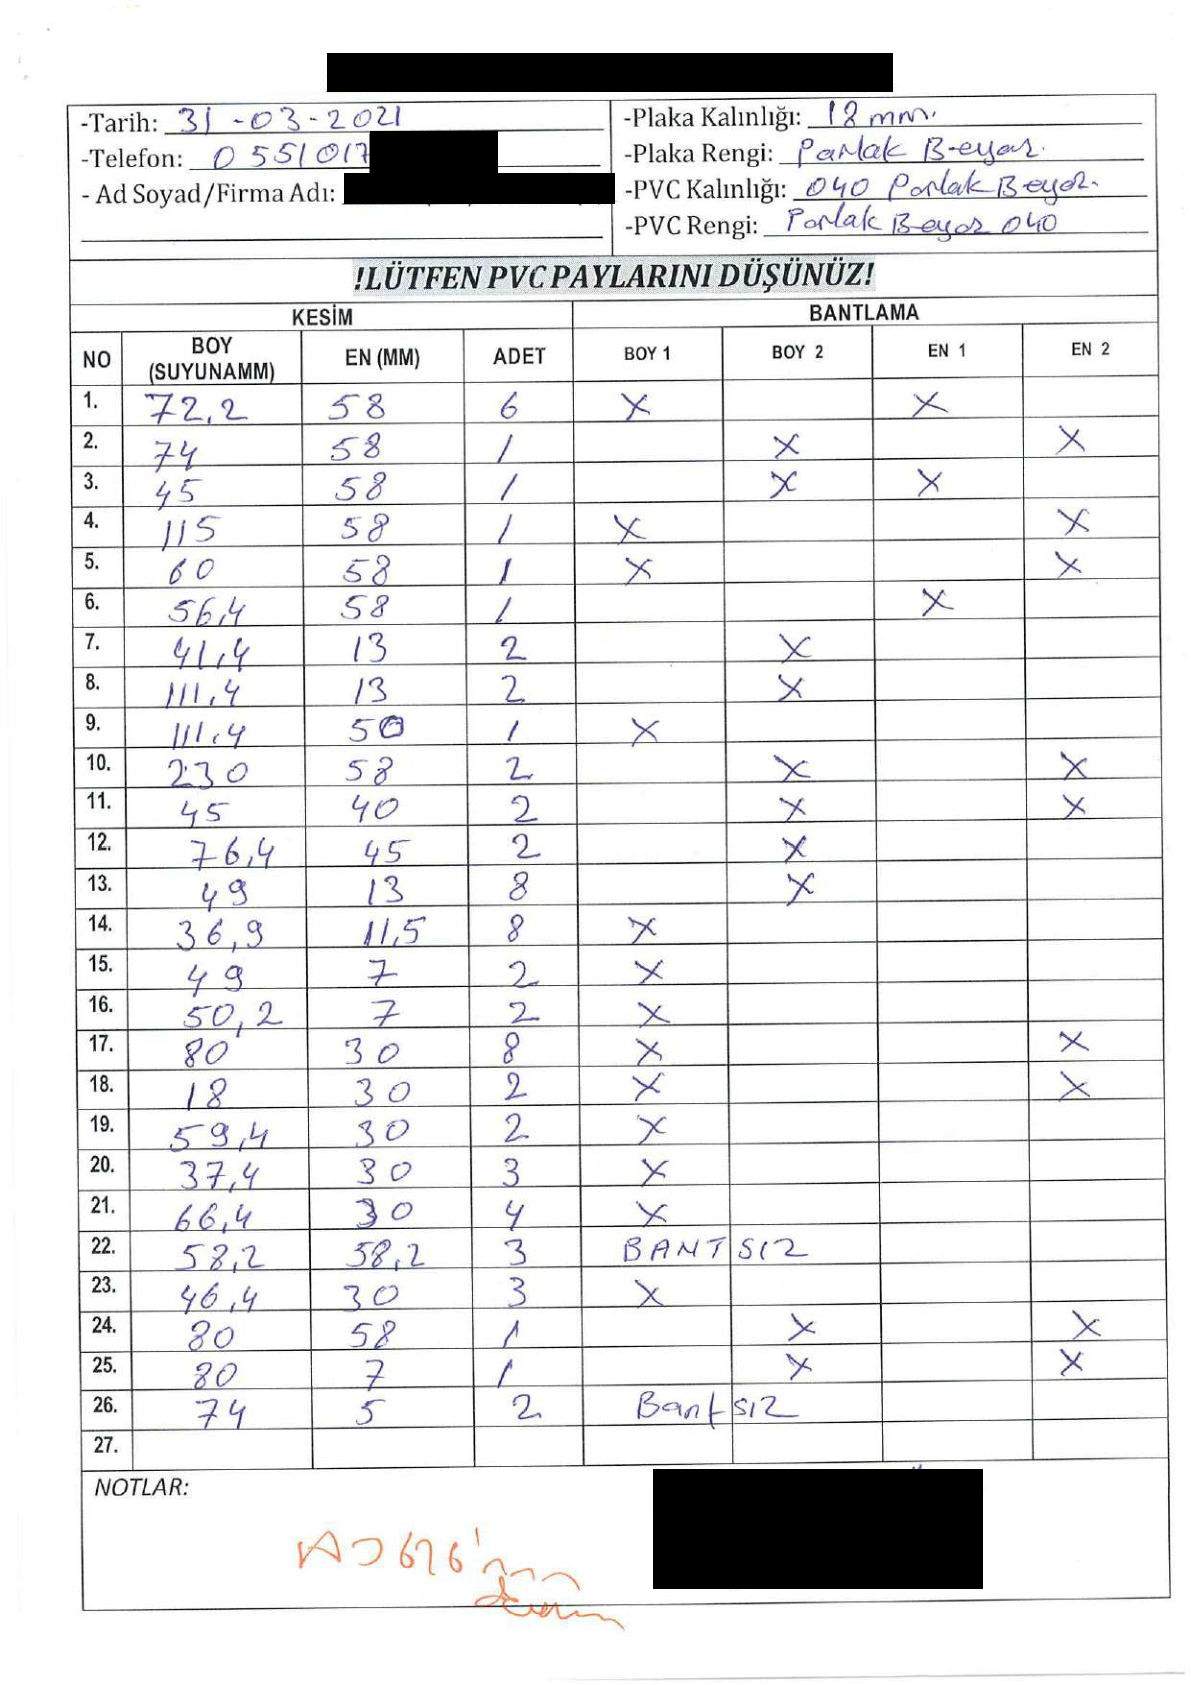 -Tarih: 31-03-2021
-Telefon: 0551017
- Ad Soyad/Firma Adı:
-Plaka Kalınlığı: 18 mm.
-Plaka Rengi: Parlak Beyaz.
-PVC Kalınlığı: 040 Parlak Beyaz.
-PVC Rengi: Parlak Beyaz 040
!LÜTFEN PVC PAYLARINI DÜŞÜNÜZ!
KESİM BANTLAMA
NO BOY (SUYUNAMM) EN (MM) ADET BOY 1 BOY 2 EN 1 EN 2
1. 72,2 58 6 X X
2. 74 58 1 X X
3. 45 58 1 X X
4. 115 58 1 X X
5. 60 58 1 X X
6. 56,4 58 1 X
7. 41,4 13 2 X
8. 111,4 13 2 X
9. 111,4 50 1 X
10. 230 58 2 X X
11. 45 40 2 X X
12. 76,4 45 2 X
13. 49 13 8 X
14. 36,9 11,5 8 X
15. 49 7 2 X
16. 50,2 7 2 X
17. 80 30 8 X X
18. 18 30 2 X X
19. 59,4 30 2 X
20. 37,4 30 3 X
21. 66,4 30 4 X
22. 58,2 58,2 3 BANTSIZ
23. 46,4 30 3 X
24. 80 58 1 X X
25. 80 7 1 X X
26. 74 5 2 Bantsız
27.
NOTLAR: